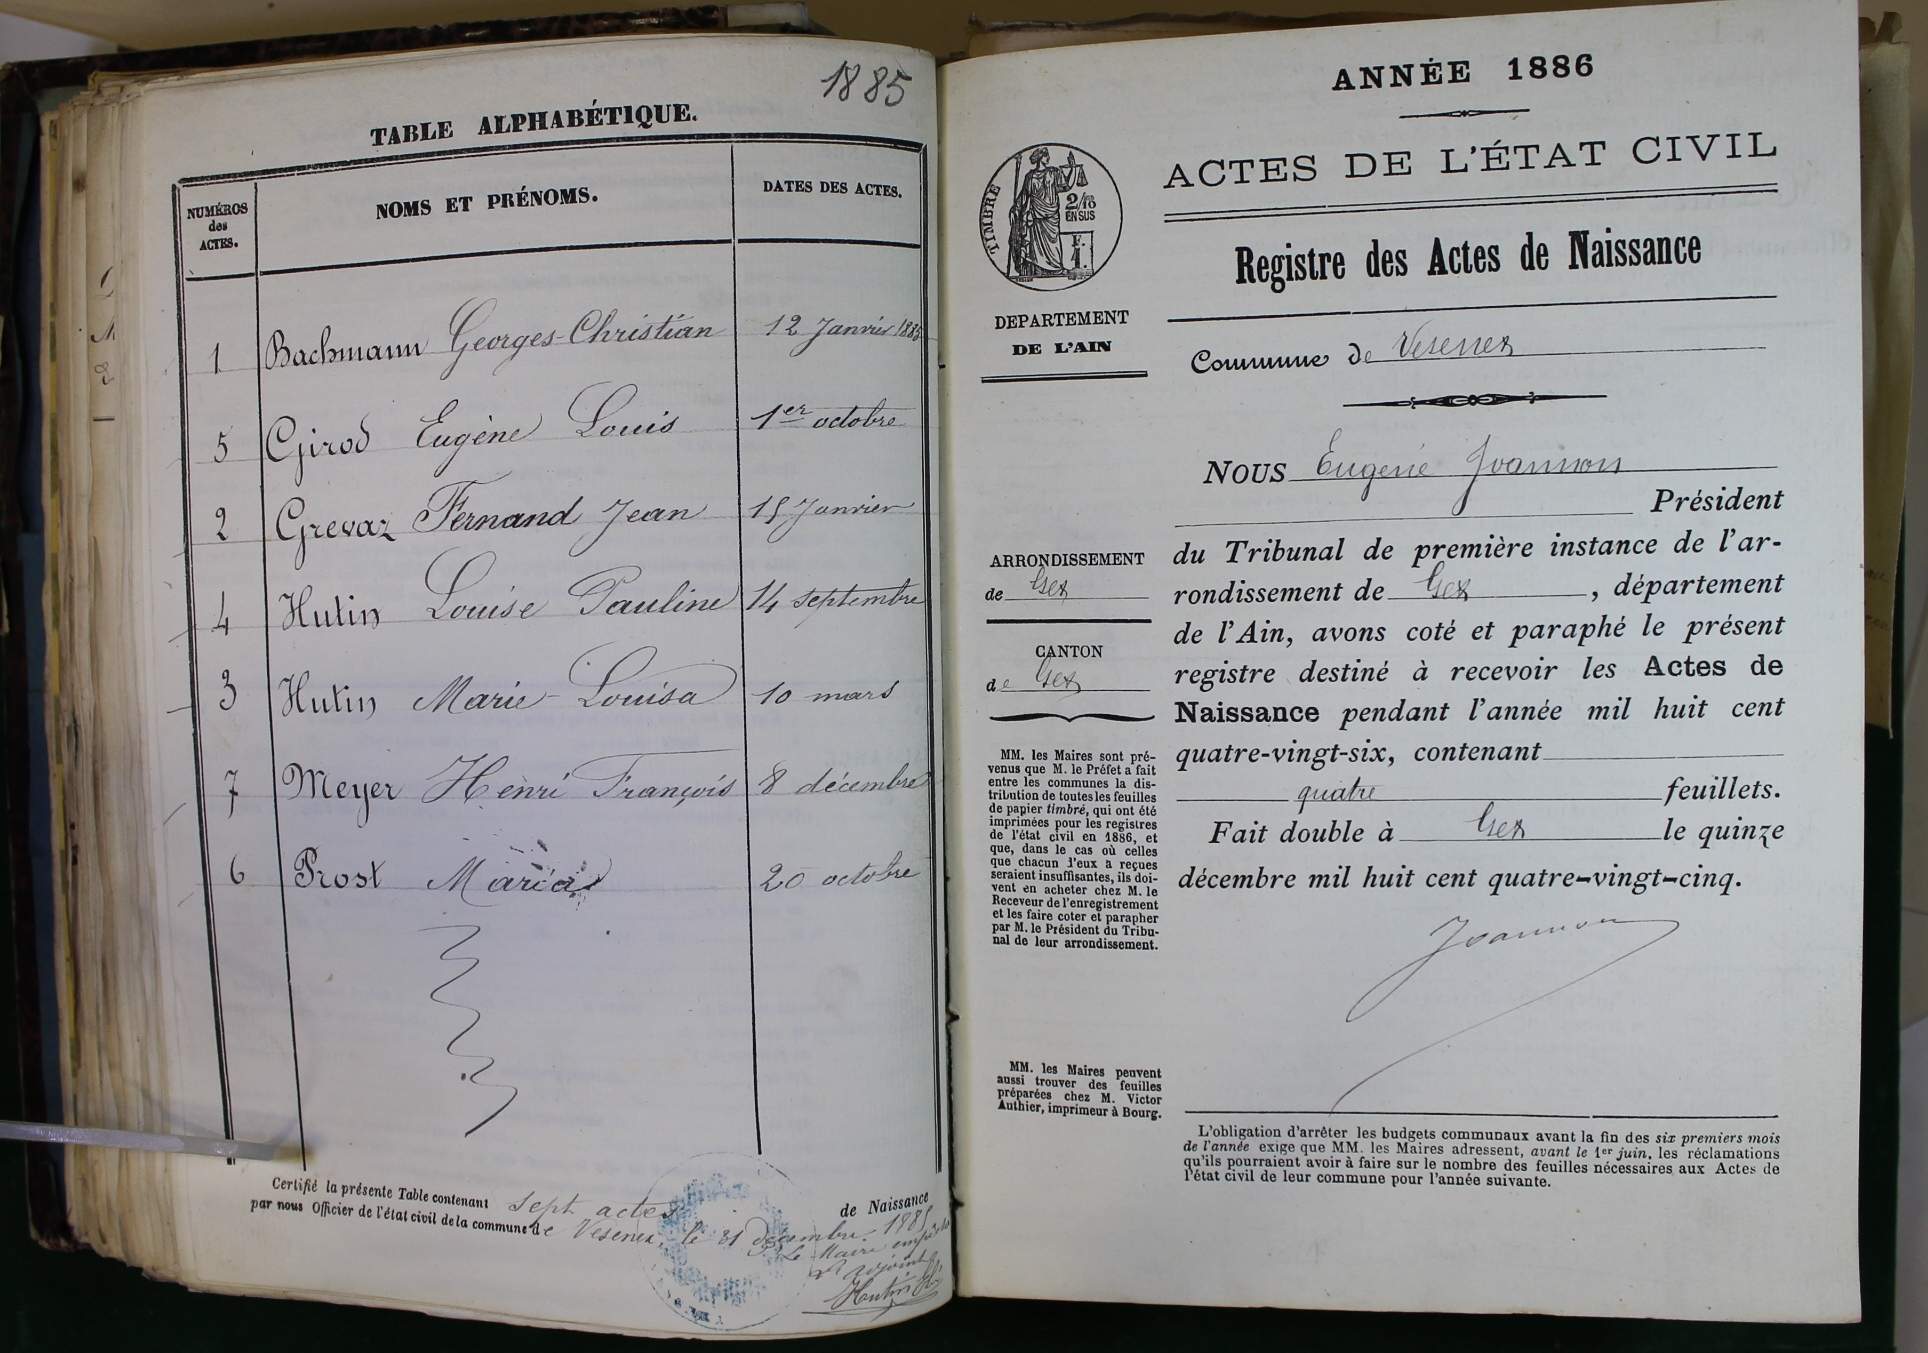 1885
TABLE ALPHABÉTIQUE.
NUMÉROS
des
ACTES.
NOMS ET PRÉNOMS.
DATES DES ACTES.
1 Bachmann Georges-Christian 12 Janvier 1885
5 Girod Eugène Louis 1er octobre
2 Grevaz Fernand Jean 15 Janvier
4 Hutin Louise Pauline 14 septembre
3 Hutin Marie-Louisa 10 mars
7 Meyer Henri François 8 décembre
6 Prost Maria 20 octobre
Certifié la présente Table contenant sept actes de Naissance
par nous Officier de l'état civil de la commune de Vesenex, le 31 Décembre 1885
Le Maire empêché
adjoint
Hutin
ANNÉE 1886
ACTES DE L'ÉTAT CIVIL
TIMBRE
2/10
EN SUS
F.
1.
Registre des Actes de Naissance
DEPARTEMENT
DE L'AIN
Commune de Vesenex
NOUS Eugène Joannon
Président
du Tribunal de première instance de l'ar-
rondissement de Gex, département
de l'Ain, avons coté et paraphé le présent
registre destiné à recevoir les Actes de
Naissance pendant l'année mil huit cent
quatre-vingt-six, contenant
quatre feuillets.
Fait double à Gex le quinze
décembre mil huit cent quatre-vingt-cinq.
Joannon
ARRONDISSEMENT
de Gex
CANTON
de Gex
MM. les Maires sont pré-
venus que M. le Préfet a fait
entre les communes la dis-
tribution de toutes les feuilles
de papier timbré, qui ont été
imprimées pour les registres
de l'état civil en 1886, et
que, dans le cas où celles
que chacun d'eux a reçues
seraient insuffisantes, ils doi-
vent en acheter chez M. le
Receveur de l'enregistrement
et les faire coter et parapher
par M. le Président du Tribu-
nal de leur arrondissement.
MM. les Maires peuvent
aussi trouver des feuilles
préparées chez M. Victor
Authier, imprimeur à Bourg.
L'obligation d'arrêter les budgets communaux avant la fin des six premiers mois
de l'année exige que MM. les Maires adressent, avant le 1er juin, les réclamations
qu'ils pourraient avoir à faire sur le nombre des feuilles nécessaires aux Actes de
l'état civil de leur commune pour l'année suivante.